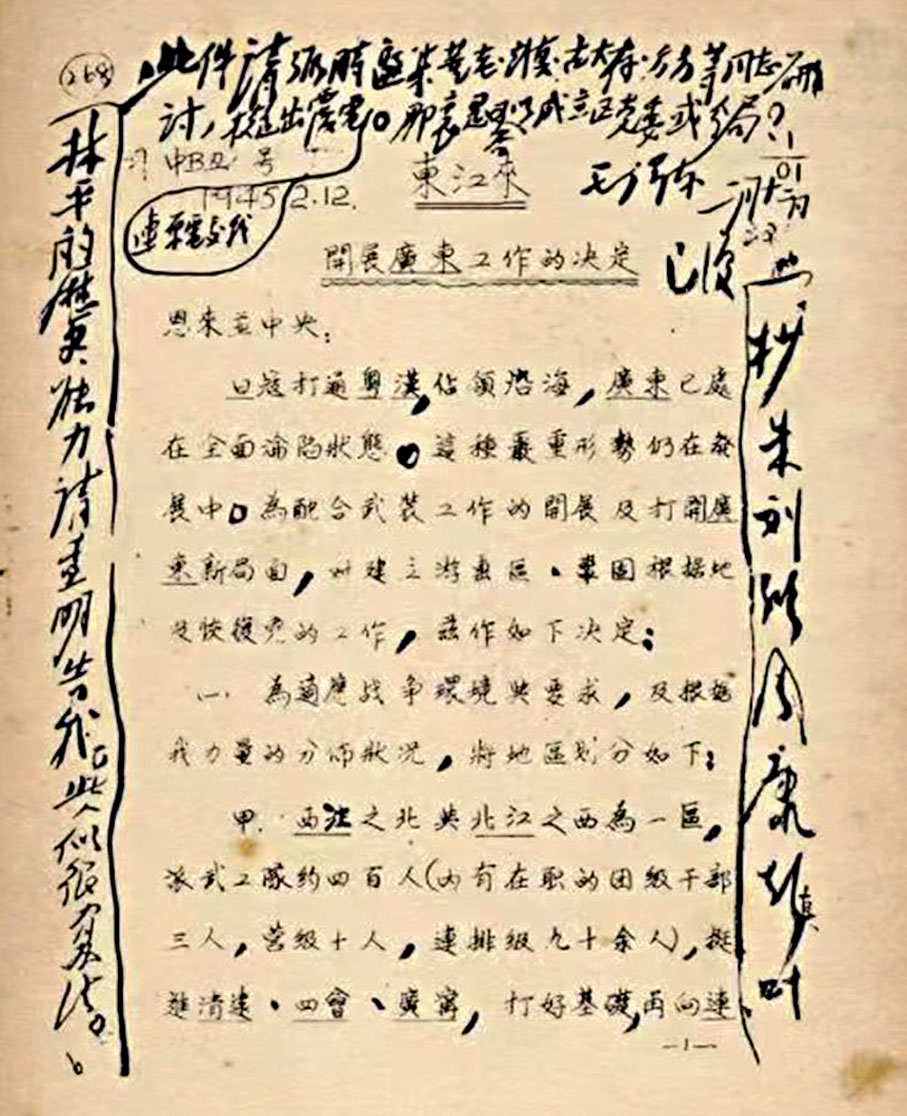 268
此件請弼時邀集董老、
等同志研
討,提出
毛澤东
中
号
1945.2.12.
東江來
連
開展廣東工作的决定
已復
恩來並中央:
日寇打通粤漢,佔領沿海,廣東已處
在全面淪陷狀態。這種嚴重形勢仍在發
展中。為配合武裝工作的開展及打開廣
東新局面,并建立游击區、鞏固根据地
及恢復党的工作,兹作如下决定:
一、為適應战争環境與要求,及根据
我力量的分佈狀况,將地區划分如下:
甲.西江之北與北江之西為一區,
派武工隊約四百人(內有在职的团級干部
三人,营级十人,連排級九十余人),挺
進清遠、四會、廣寧,打好基礎,再向連
—1—
林平的歷史、能力請查明告我。此人似很有办法。
抄朱刘
周康
叶